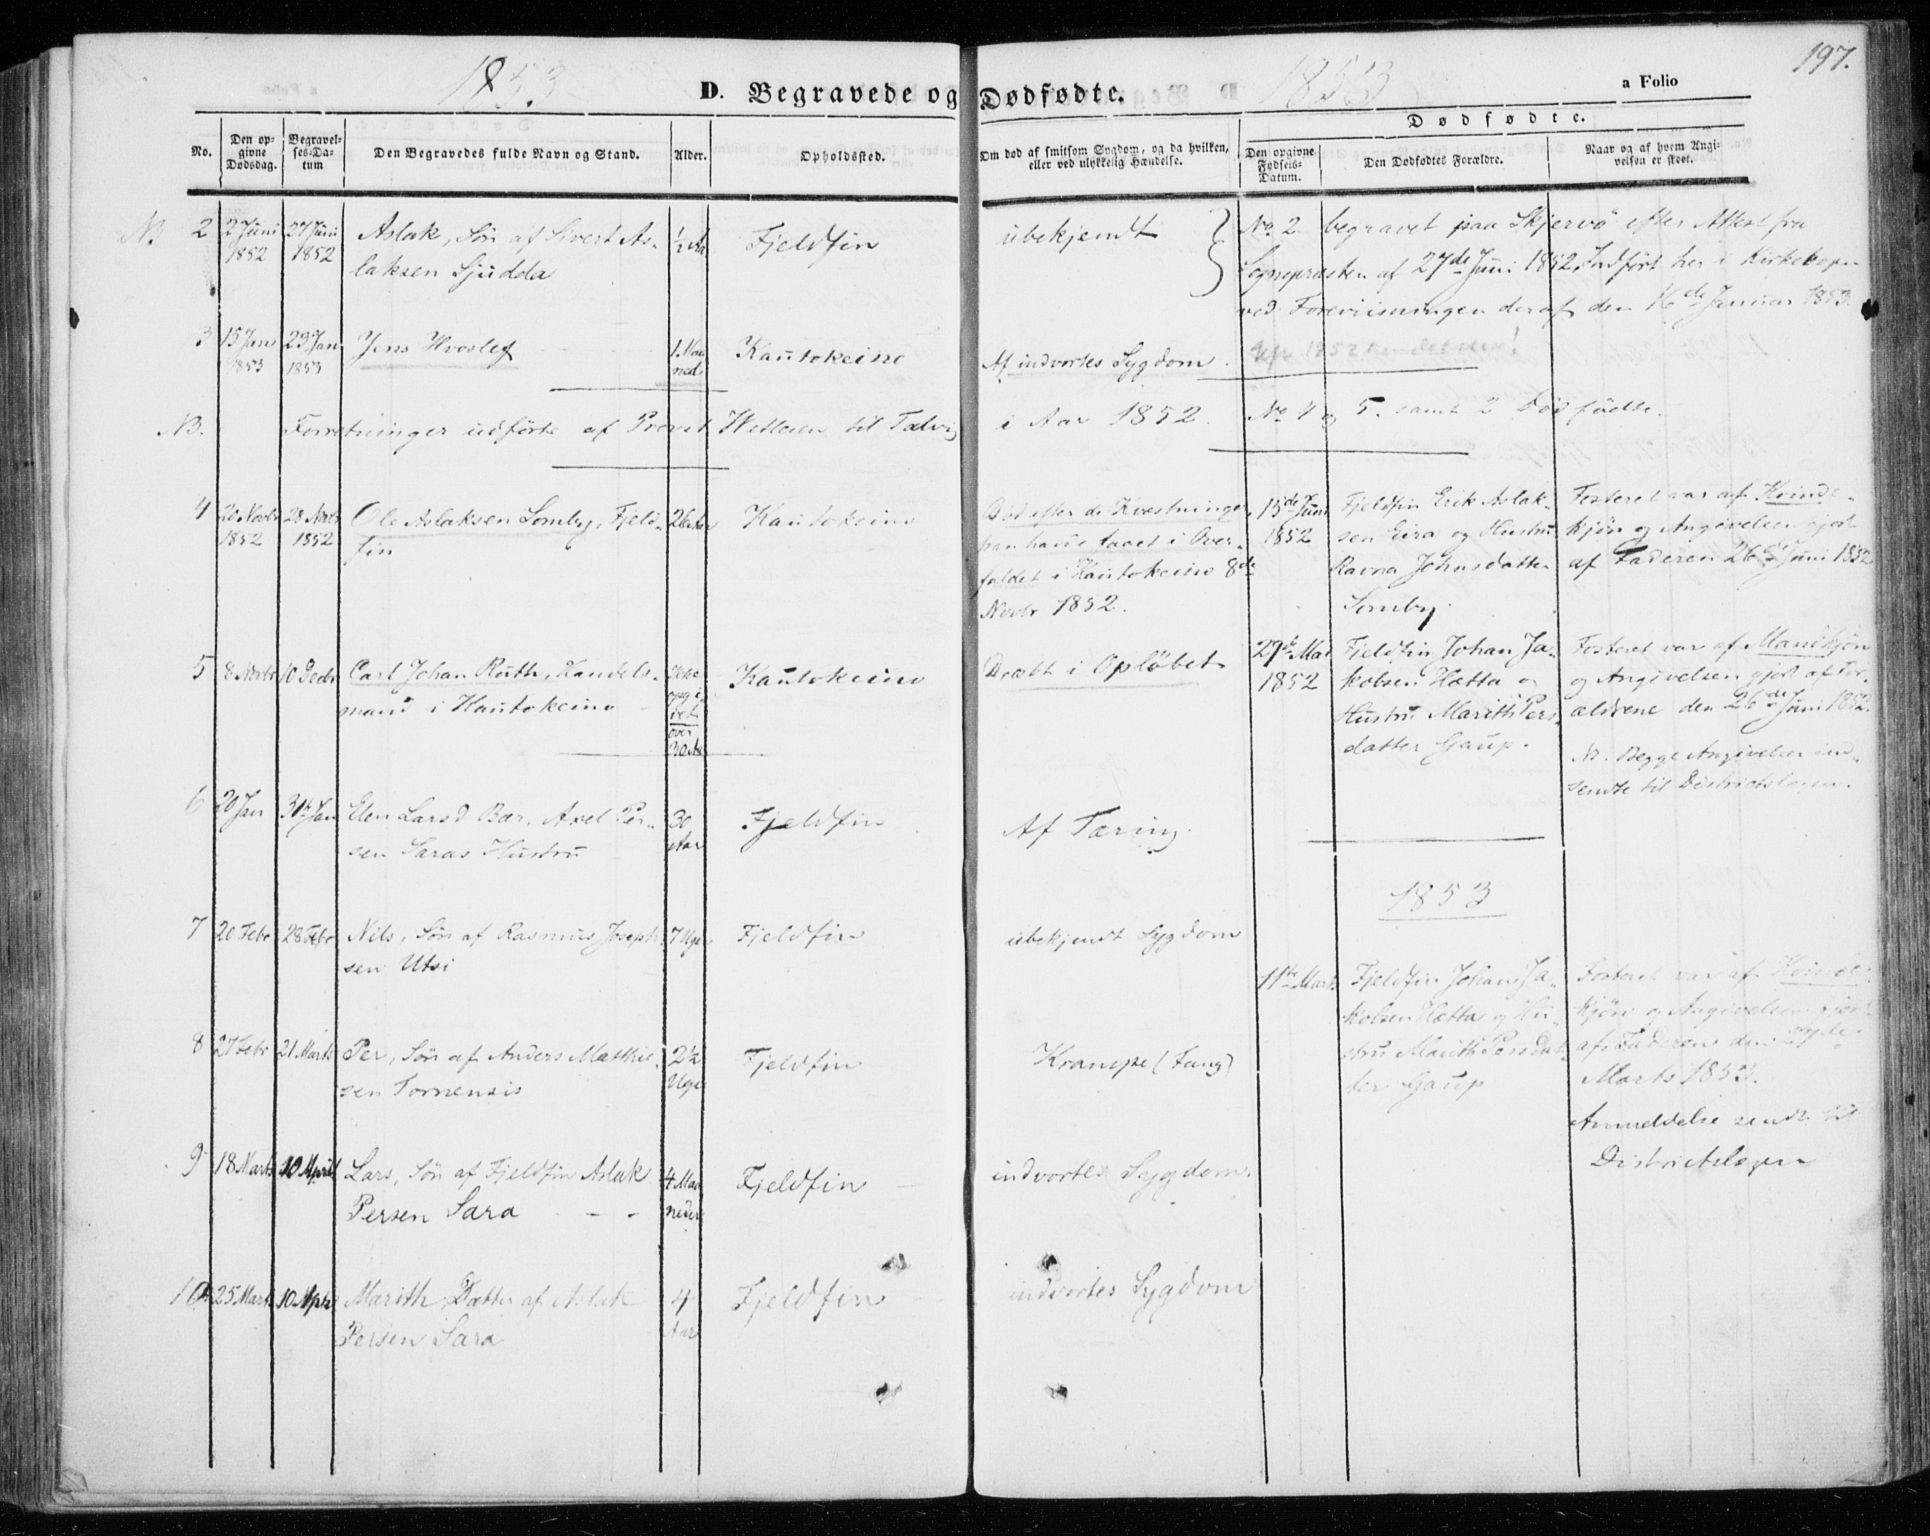 1853
D. Begravede og Dødfødte.
1853
a Folio
197.
No.
Den opgivne Dødsdag.
Begravelses-Datum
Den Begravedes fulde Navn og Stand.
Alder.
Opholdssted.
Om død af smitsom Sygdom, og da hvilken,
eller ved ulykkelig Hændelse.
Dødfødte.
Den opgivne Fødsels-Datum.
Den Dødfødtes Forældre.
Naar og af hvem Angi-
velsen er skeet.
NB 2 2 Juni 1852 27 Juni 1852
Aslak, Søn af Sivert As-
laksen Sjudda
½ Aa
Fjeldfin
ubekjendt
No 2 begravet paa Skjervö efter Attest fra
Sognepræsten af 27de Juni 1852, Indført her i Kirkebogen
ved Foreviisningen deraf den 16de Januar 1853.
3 15 Jan 1853 23 Jan 1853
Jens Hvoslef
1. Maa
ned
Kautokeino
Af indvortes Sygdom.
NB. Forretninger udförte af Provst Zetlitz til Talvig
i Aar 1852. No 4 og 5. samt 2 Dødfödte.
4 20 Novbr 1852 28 Novbr 1852
Ole Aslaksen Somby, Fjeld-
fin
26 Aar
Kautokeino
Død efter de Kvæstninger
han havde faaet i Over-
faldet i Kautokeino 8de
Novbr 1852.
15de Juni
1852
Fjeldfin Erik Aslak-
sen Eira og Hustru
Ravna Johnsdatter
Somby.
Fosteret var af Kvinde-
kjøn og Angivelsen gjort
af Faderen 26de Juni 1852
5 8 Novbr 10 Decbr
Carl Johan Ruth, Handels-
mand i Kautokeino
Ikke
opgi-
vet
over
30 Aar
Kautokeino
Dræbt i Opløbet
29de Mai
1852
Fjeldfin Johan Ja-
kobsen Hætta og
Hustru Marith Pers-
datter Gaup.
Fosteret var af Mandkjön
og Angivelsen gjort af For-
ældrene den 26de Juni 1852.
NB. Begge Angivelser ind-
sendte til Districtslægen.
6 20 Jan 31te Jan
Elen Larsd Bær, Axel Per-
sen Saras Hustru
30
Aar
Fjeldfin
Af Tæring.
1853
7 20 Febr 28 Febr
Nils, Søn af Rasmus Joseph-
sen Utsi
7 Uger
Fjeldfin
ubekjendt Sygdom
11te Marts
Fjeldfin Johan Ja-
kobsen Hætta og Hu-
stru Marith Persdat-
ter Gaup
Fosteret var af Kvinde-
kjön og Angivelsen gjort
af Faderen den
Marts 1853.
Anmeldelse sendt til
Districtslægen
8 27 Febr 21 Marts
Per, Søn af Anders Mathie-
sen Tornensis
2½
Uge
Fjeldfin
Krampe (Fang)
9 18 Marts 10 April
Lars, Søn af Fjeldfin Aslak
Persen Sara
4 Maa
neder
Fjeldfin
indvortes Sygdom.
10 25 Mart 10 Apr
Marith, Datter af Aslak
Persen Sara
4
Aar
Fjeldfin
indvortes Sygdom